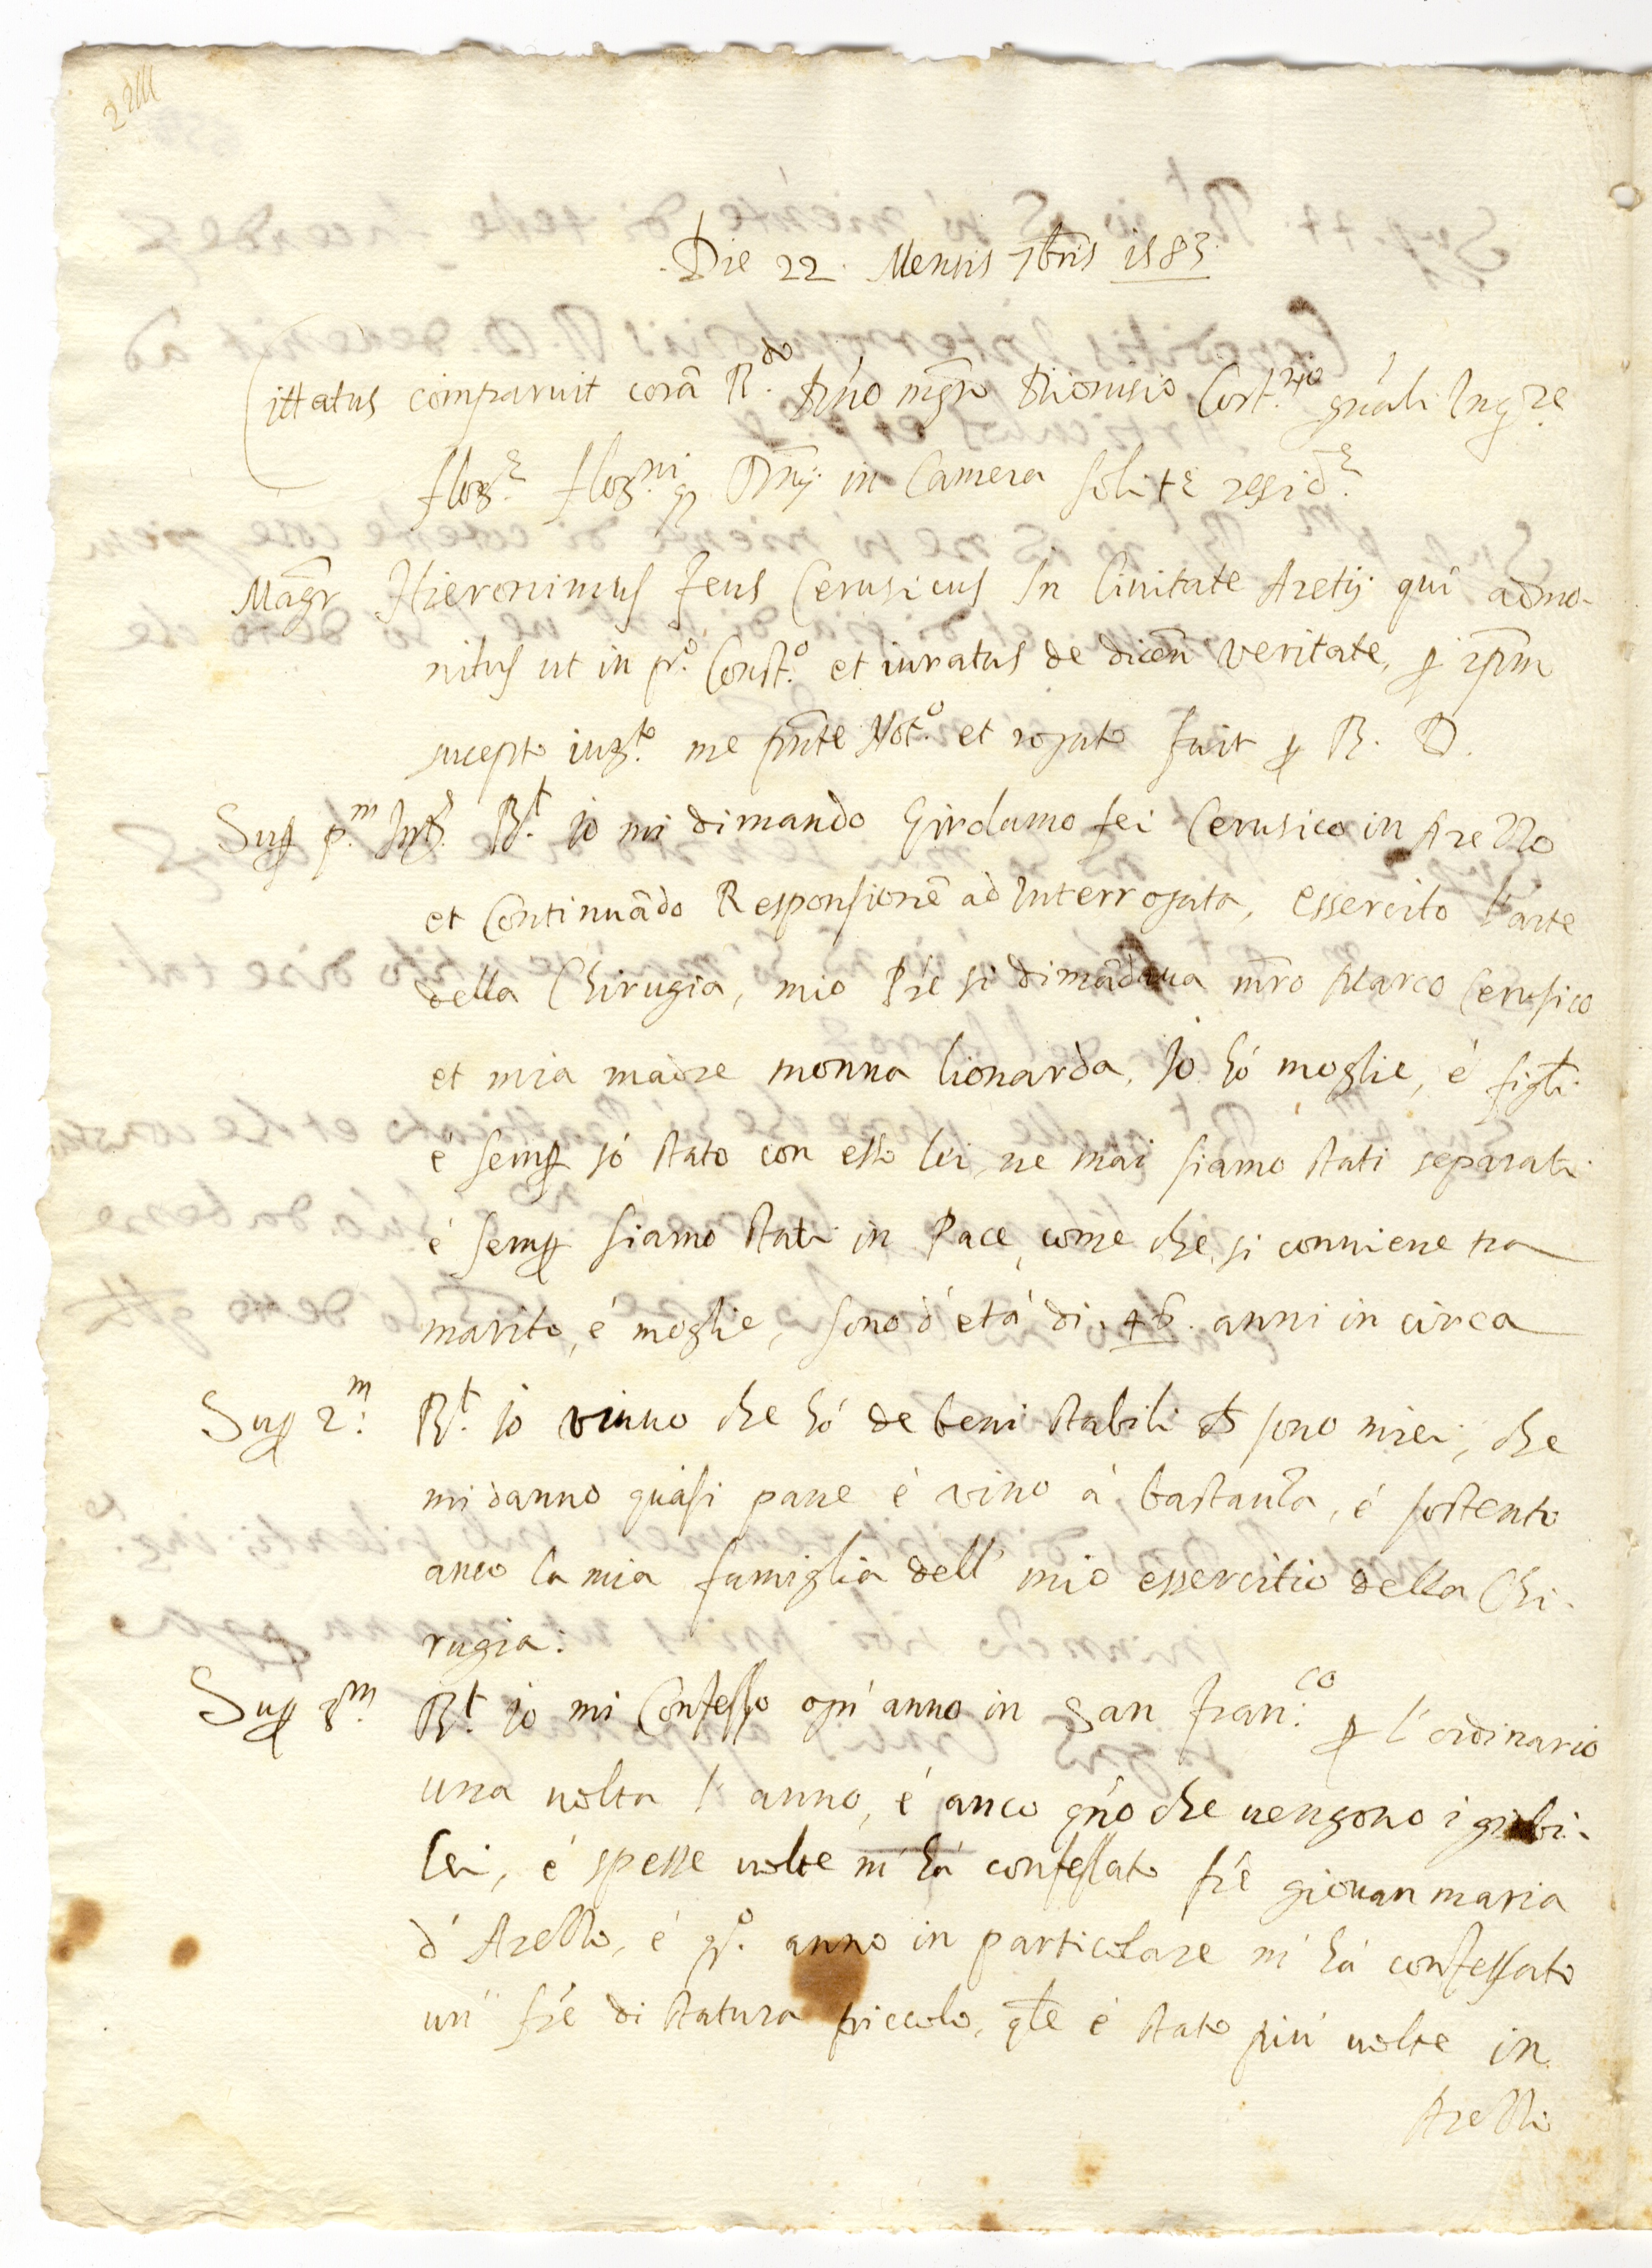 Die 22. Mensis 7bris 1583.
Cittatus comparuit corã R.do Dno mgro Dionisio Cort.no gnãli Inq.re
flor.e in Camera solite resid.e
Magr Hieronimus Feus Cerusicus In Civitate Aretij qui admo-
nitus ut in pr.o Const.o et iuratus de dicen veritate, p ipm
suscepto iur.to me pnte Not.o et rogato fuit p R. D.
Sup p.m Int. R.t Io mi dimando Girolamo fei Cerusico in Arezzo
et Continuãdo Responsionẽ ad Interrogata, essercito l'arte
della Chirugia, mio Pre si dimãdava mro Marco Cerusico
et mia madre monna lionarda, Io hó moglie, é figli.
e semp só stato con esso lei, ne mai siamo stati separati
é semp siamo stati in Pace, come che si conviene tra
marito, é moglie, sono d'etá di 46. anni in circa
Sup 2.m R.t Io vivuo che hó de beni stabili sono miei, che
mi danno quasi pane é vino á bastanza, é sostento
anco la mia famiglia dell' mio essercitio della Chi-
rugia:
Sup 3.m R.t Io mi Confesso ogn'anno in San Fran.co p l'ordinario
una volta l'anno, é anco qño che vengono i giubi-
lei, é spesse volte m'há confessato fre giovan maria
d'Arezzo, é q.o anno in particolare m'há confessato
un' fre di statura piccolo, qle é stato piu volte in
Arezzo